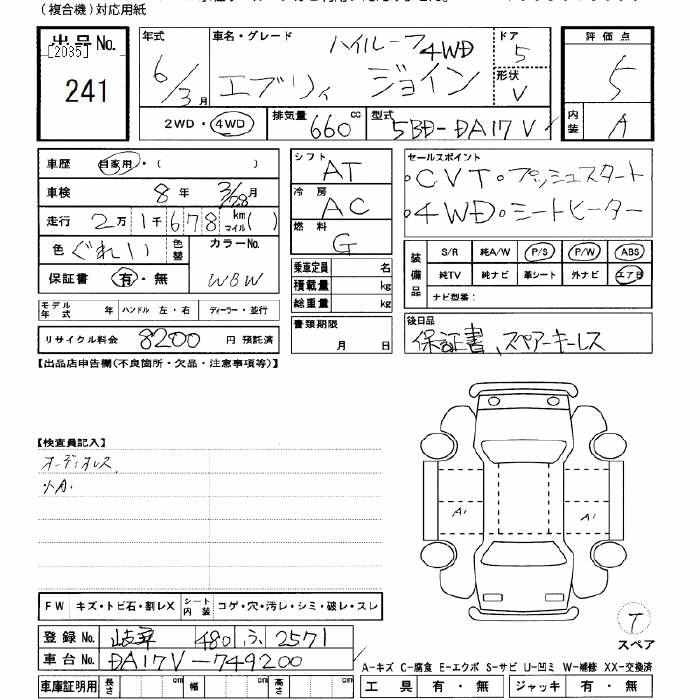 (複合機)対応用紙
出品No.
[2035]
241
年式
6/3月
車名・グレード
ハイルーフ4WD
エブリィ ジョイン
ドア
5
形状
V
評価点
5
内装
A
2WD・4WD
排気量 660cc
型式 5BD-DA17V
車歴 自家用・( )
車検 8年 3/28月
走行 2万1千678km マイル( )
色 ぐれい 色替
カラーNo.
WBW
保証書 有・無
モデル年式 年
ハンドル 左・右
ディーラー・並行
リサイクル料金 8200円 預託済
シフト
AT
冷房
AC
燃料
G
乗車定員 名
積載量 kg
総重量 kg
書類期限
月 日
セールスポイント
・CVT・プッシュスタート
・4WD・シートヒーター
装備品
S/R 純A/W P/S P/W ABS
純TV 純ナビ 革シート 外ナビ エアB
ナビ型番:
後日品
保証書、スペアーキーレス
【出品店申告欄(不良箇所・欠品・注意事項等)】
【検査員記入】
オーディオレス
小A1
A1
A1
FW キズ・トビ石・割レX
シート内装 コゲ・穴・汚レ・シミ・破レ・スレ
T
スペア
登録No. 岐阜 480 ふ 2571
車台No. DA17V-749200
車庫証明用 長さ cm 幅 cm 高さ cm
A-キズ C-腐食 E-エクボ S-サビ U-凹ミ W-補修 XX-交換済
工具 有・無 ジャッキ 有・無